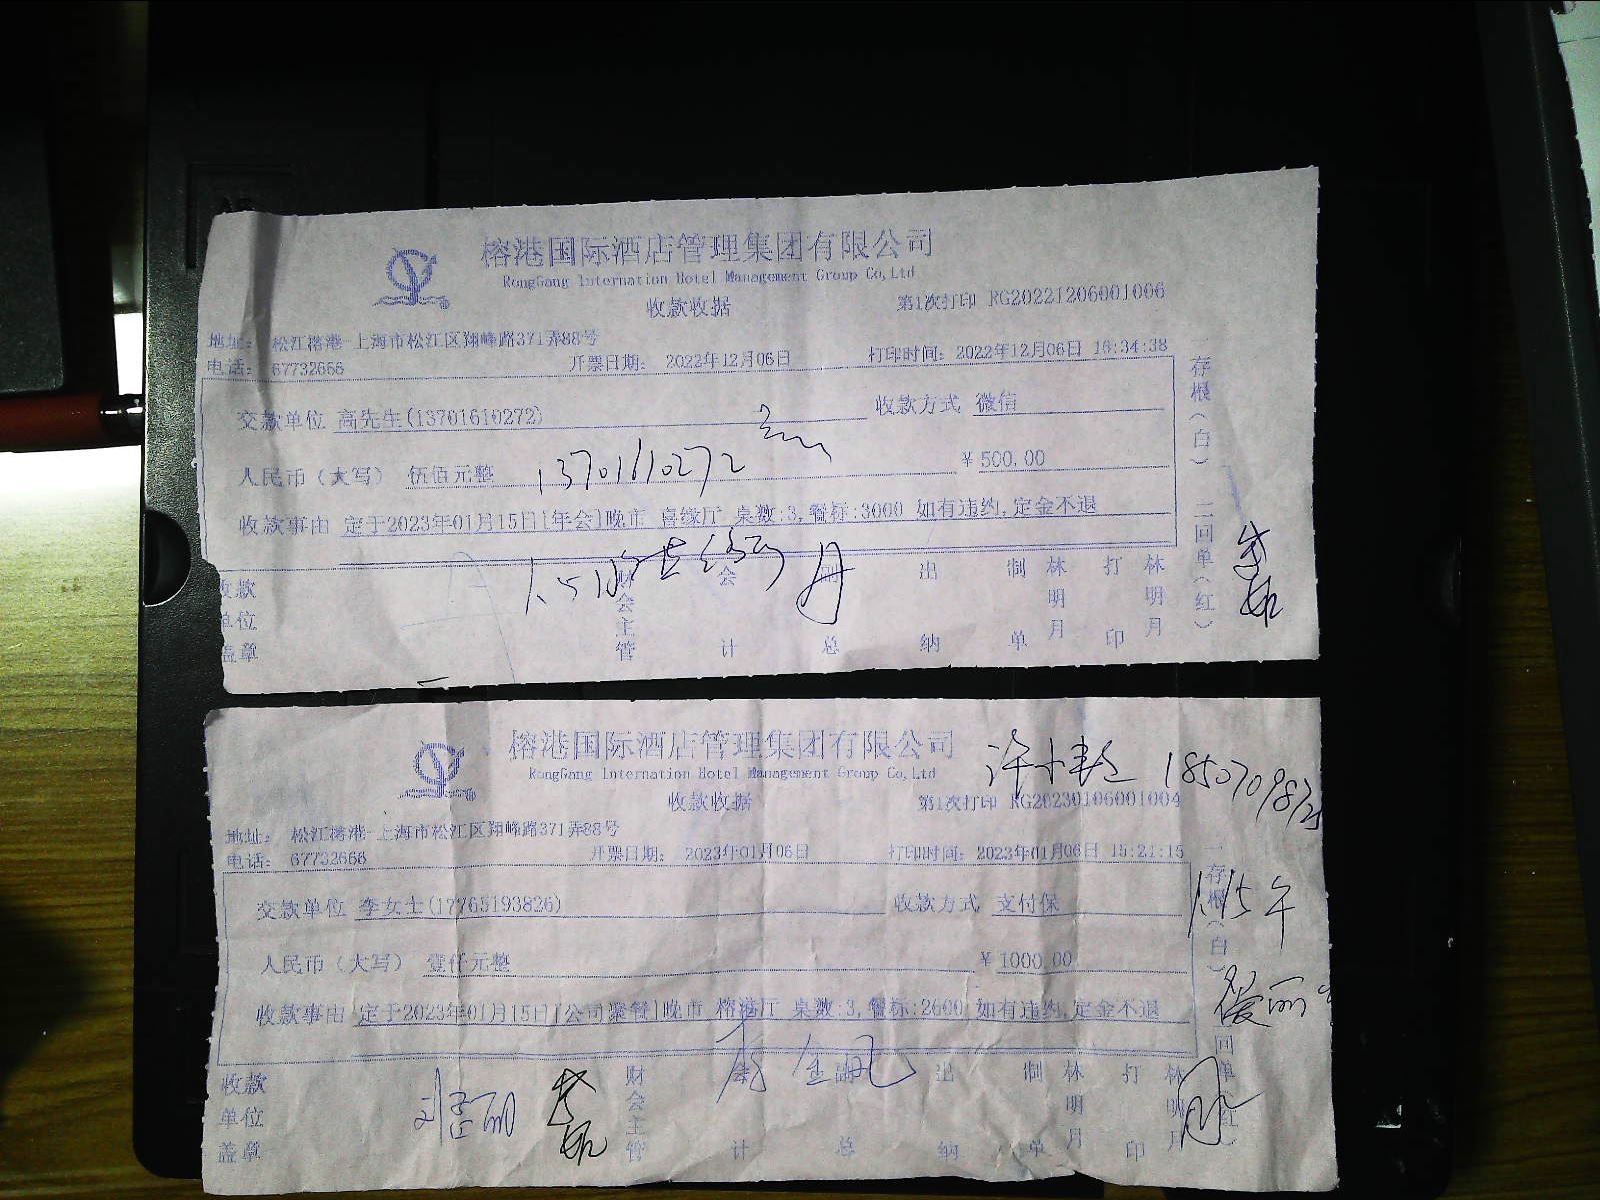 榕港国际酒店管理集团有限公司
RongGang Internation Hotel Management Group Co,Ltd
收款收据
第1次打印 RG20221206001006
地址: 松江榕港-上海市松江区翔峰路371弄88号
电话: 67732666 开票日期: 2022年12月06日 打印时间: 2022年12月06日 16:34:38
交款单位 高先生(13701610272) 收款方式 微信
人民币(大写) 伍佰元整 13701610272 ¥500.00
收款事由 定于2023年01月15日[年会]晚市 喜缘厅 桌数:3,餐标:3000 如有违约,定金不退
收款单位盖章 财会主管 会计 副总 出纳 制单 林明月 打印 林明月
一存根(白) 二回单(红)
榕港国际酒店管理集团有限公司
RongGang Internation Hotel Management Group Co,Ltd
收款收据
第1次打印 RG20230106001004
地址: 松江榕港-上海市松江区翔峰路371弄88号
电话: 67732666 开票日期: 2023年01月06日 打印时间: 2023年01月06日 15:21:15
交款单位 李女士(17765193826) 收款方式 支付保
人民币(大写) 壹仟元整 ¥1000.00
收款事由 定于2023年01月15日[公司聚餐]晚市 榕港厅 桌数:3,餐标:2600 如有违约,定金不退
收款单位盖章 财会主管 会计 副总 出纳 制单 林明月 打印 林明月
一存根(白) 二回单(红)